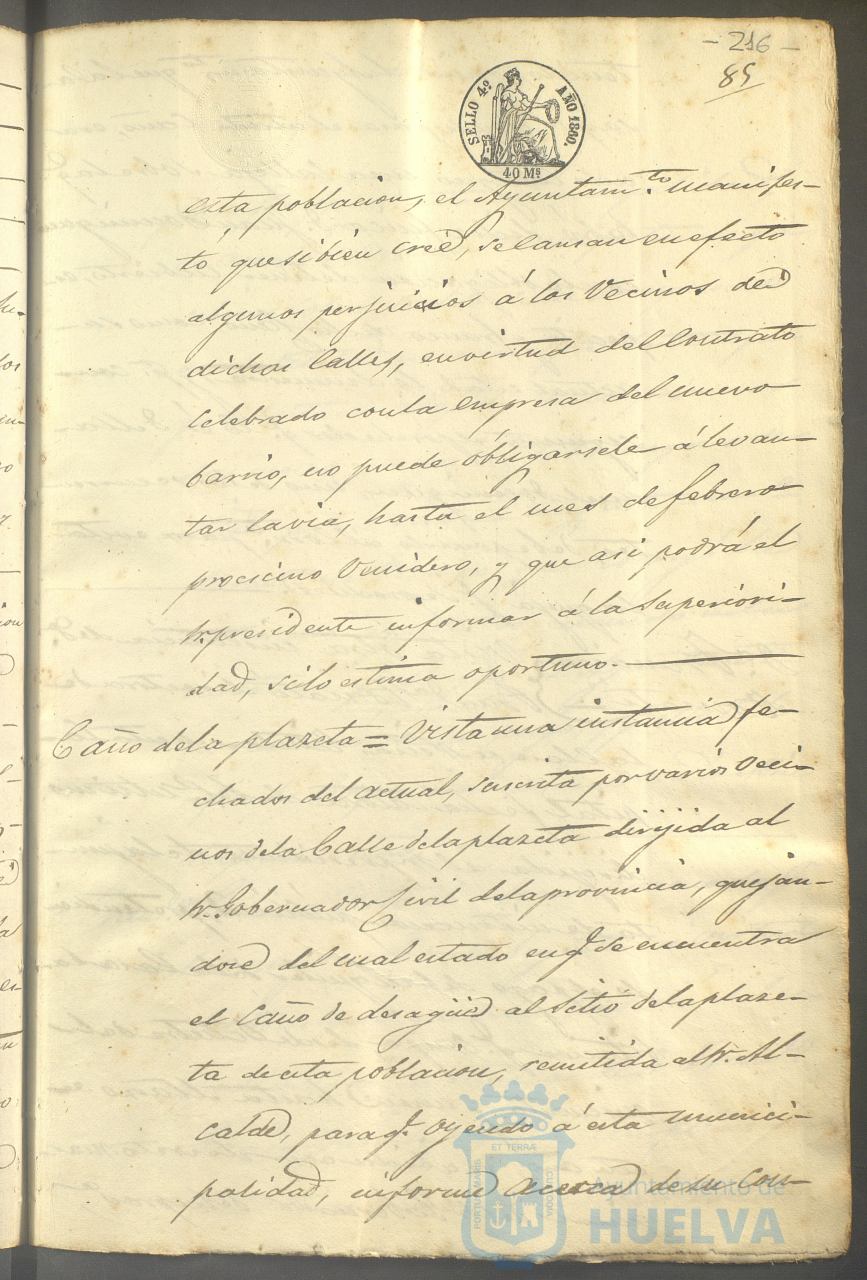 - 216 -
85
SELLO 4º AÑO 1860.
40 Ms
esta poblacion, el Ayuntam.to manifes-
tó que si bien creé, se causan en efecto
algunos perjuicios á los Vecinos de
dichas Calles, en virtud del Contrato
celebrado con la empresa del nuevo
barrio, no puede óbligarsele á levan-
tar la via, hasta el mes de febrero
procsimo Venidero, y que asi podrá el
Sr. presidente informar á la Superiori-
dad, si lo estima oportuno.
Caño de la plazeta = Vista una instancia fe-
cha dos del actual, suscrita por varios Veci-
nos de la Calle de la plazeta dirijida al
Sr. Gobernador Civil de la provincia, quejan-
dose del mal estado en q.e se encuentra
el Caño de desagüe al Sitio de la plaze-
ta de esta poblacion, remitida al Sr. Al-
calde, para q.e oyendo á esta munici-
palidad, informe acerca de su con-
PORTUS MARIS ET TERRÆ CUSTODIA
Ayuntamiento de
HUELVA